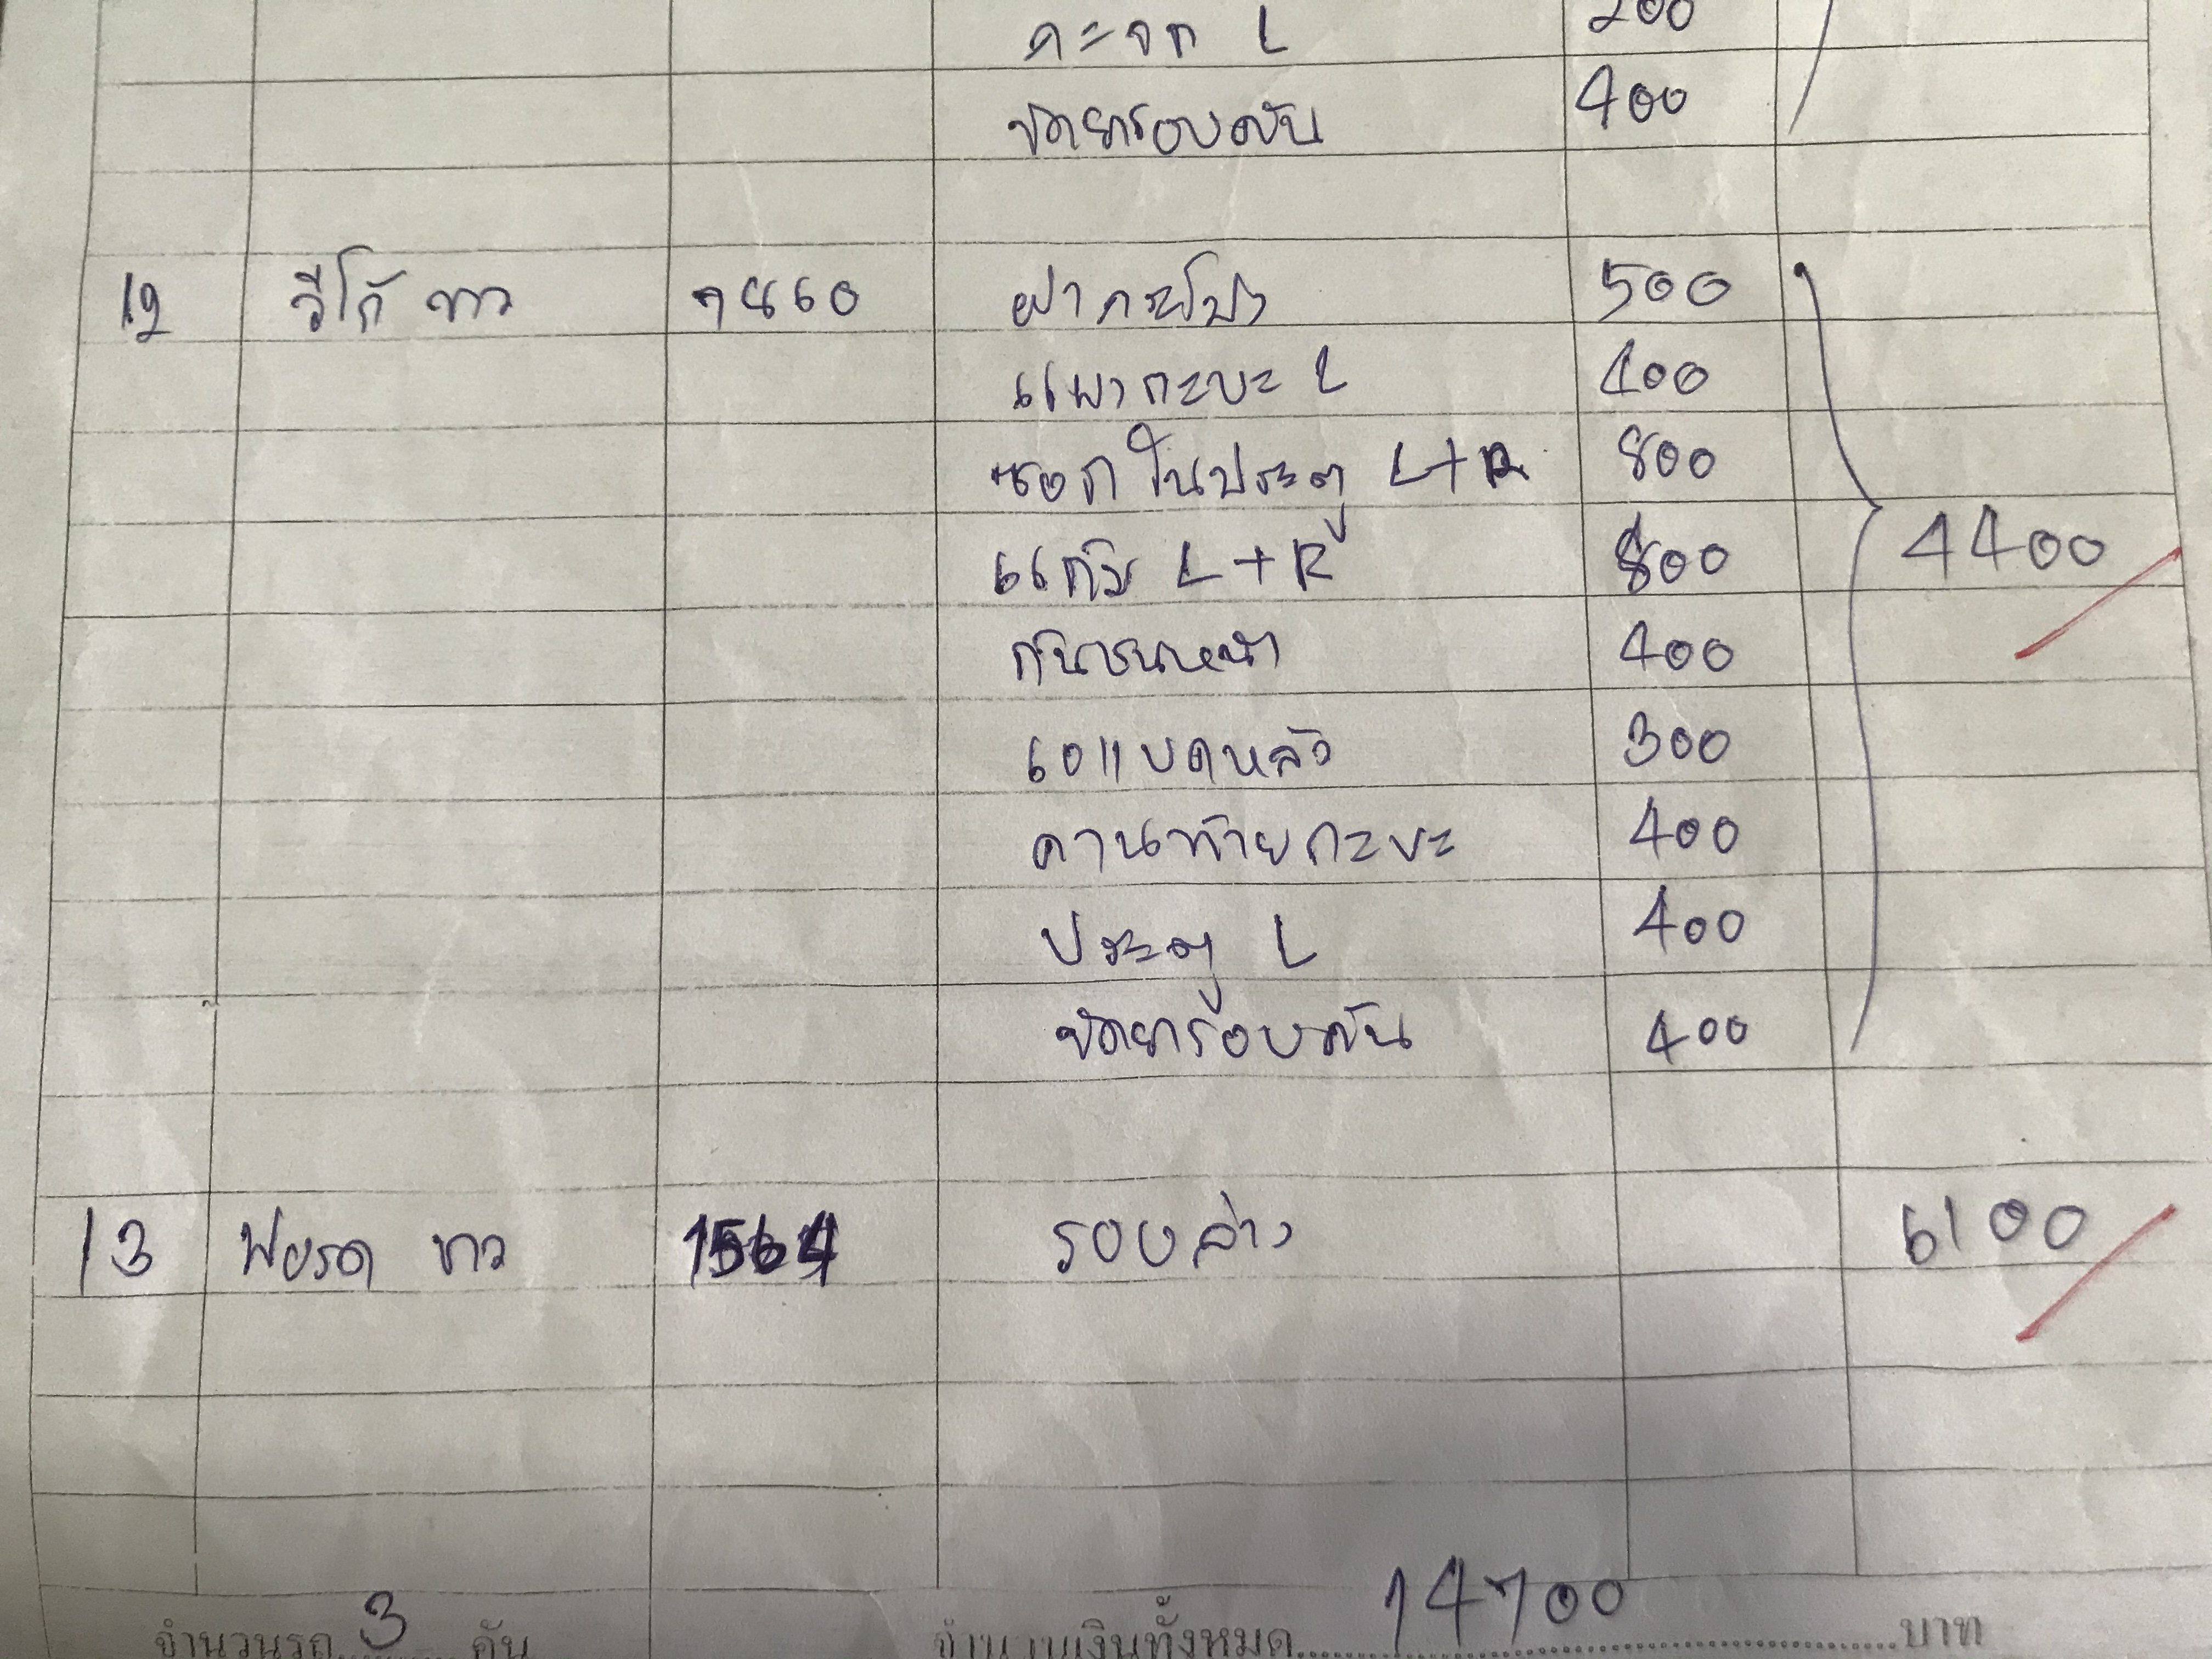 กะจก L 200
ขัดยารอบคัน 400
12 วีโก้ ขาว 7860 ฝากระโปง 500
แผงกะบะ L 400
ซอกในประตู L+R 800
แก้ม L+R 800 4400
กันชนหน้า 400
แคบหลัง 300
คานท้ายกะบะ 400
ประตู L 400
ขัดยารอบคัน 400
13 ฟอรด ขาว 1564 รอบล่าง 6100
จำนวนรถ 3 คัน จำนวนเงินทั้งหมด 14700 บาท